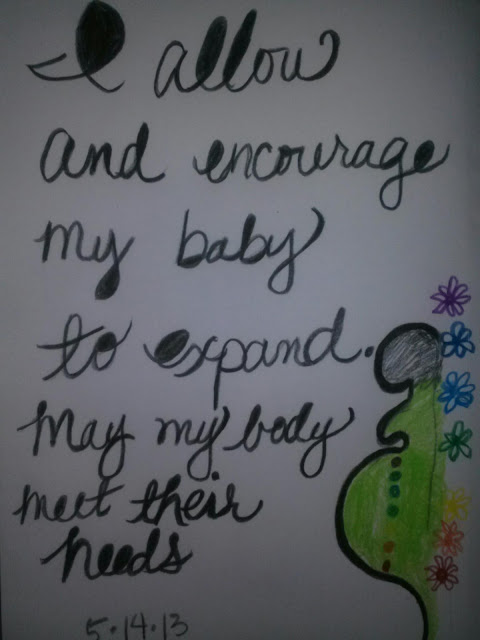 I allow
and encourage
my baby
to expand.
May my body
meet their
needs
5.14.13